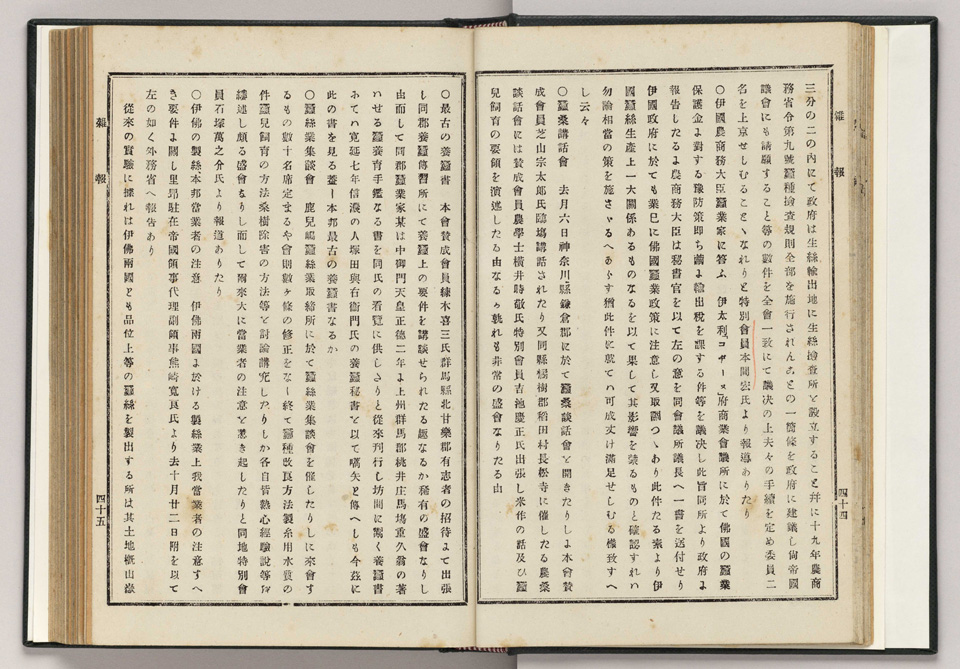 雑報
四十四
三分の二の内にて政府は生絲輸出地に生絲撿査所と設立すること幷に十九年農商
務省令第九號蠶種撿査規則全部を施行されんことの一箇條を政府に建議し尙帝國
議會にも請願すること等の數件を全會一致にて議决の上夫々の手續を定め委員二
名を上京せしむることゝなれりと特別會員本間宏氏より報導ありたり
〇伊國農商務大臣蠶業家に答ふ 伊太利コ府商業會議所に於て佛國の蠶業
保護金よ對する豫防策即ち繭よ輸出稅を課する件等を議决し此旨同所より政府よ
報告したるよ農商務大臣は秘書官を以て左の意を同會議所議長へ一書を送付せり
伊國政府に於ても業已に佛國蠶業政策に注意し又取調つゝあり此件たる素より伊
國蠶絲生產上一大關係あるものなるを以て果して其影響を蒙るものと確認すれハ
勿論相當の策を施さゞるへあらす猶此件に就てハ可成丈け滿足せしむる樣致すへ
し云々
〇蠶桑講話會 去月六日神奈川縣鎌倉郡に於て蠶桑談話會と開きたりしよ本會贊
成會員芝山宗太郎氏臨塲講話されたり又同縣橘樹郡稻田村長松寺に催したる農桑
談話會には贊成會員農學士橫井時敬氏特別會員吉池慶正氏出張し米作の話及ひ蠶
兒飼育の要領を演述したる由なるゟ孰れも非常の盛會なりたる由
〇最古の養蠶書 本會贊成會員練木喜三氏群馬縣北甘樂郡有志者の招待よて出張
し同郡養蠶傳習所にて養蠶上の要件を講談せられたる趣なるか稀有の盛會なりし
由而して同郡蠶業家某は中御門天皇正德二年よ上州群馬郡桃井庄馬塲重久翁の著
ハせる蠶養育手鑑なる書を同氏の看覽に供しさりと從來刊行し坊間に鬻く養蠶書
ふてハ寬延七年信濃の人塚田與右衞門氏の養蠶秘書と以て嚆矢と傳へしも今茲に
此の書を見る蓋し本邦最古の養蠶書なるか
〇蠶絲業集談會 鹿兒嶋蠶絲業取締所に於て蠶絲業集談會を催したりしに來會す
るもの數十名席定まるや會則數ヶ條の修正をなし終て蠶種改良方法製糸用水質の
件蠶兒飼育の方法桑樹除害の方法等と討論講究したりしか各自皆熱心經驗說等を
縷述し頗る盛會なりし而して爾來大に當業者の注意と惹き起したりと同地特別會
員石塚萬之介氏より報道ありたり
〇伊佛の製絲本邦當業者の注意 伊佛兩國よ於ける製絲業上我當業者の注意すへ
き要件よ關し里昂駐在帝國領事代理副領事熊崎寬良氏より去十月廿二日附を以て
左の如く外務省へ報告あり
從來の實驗に據れは伊佛兩國とも品位上等の蠶絲を製出する所は其土地槪山嶽
雑報
四十五